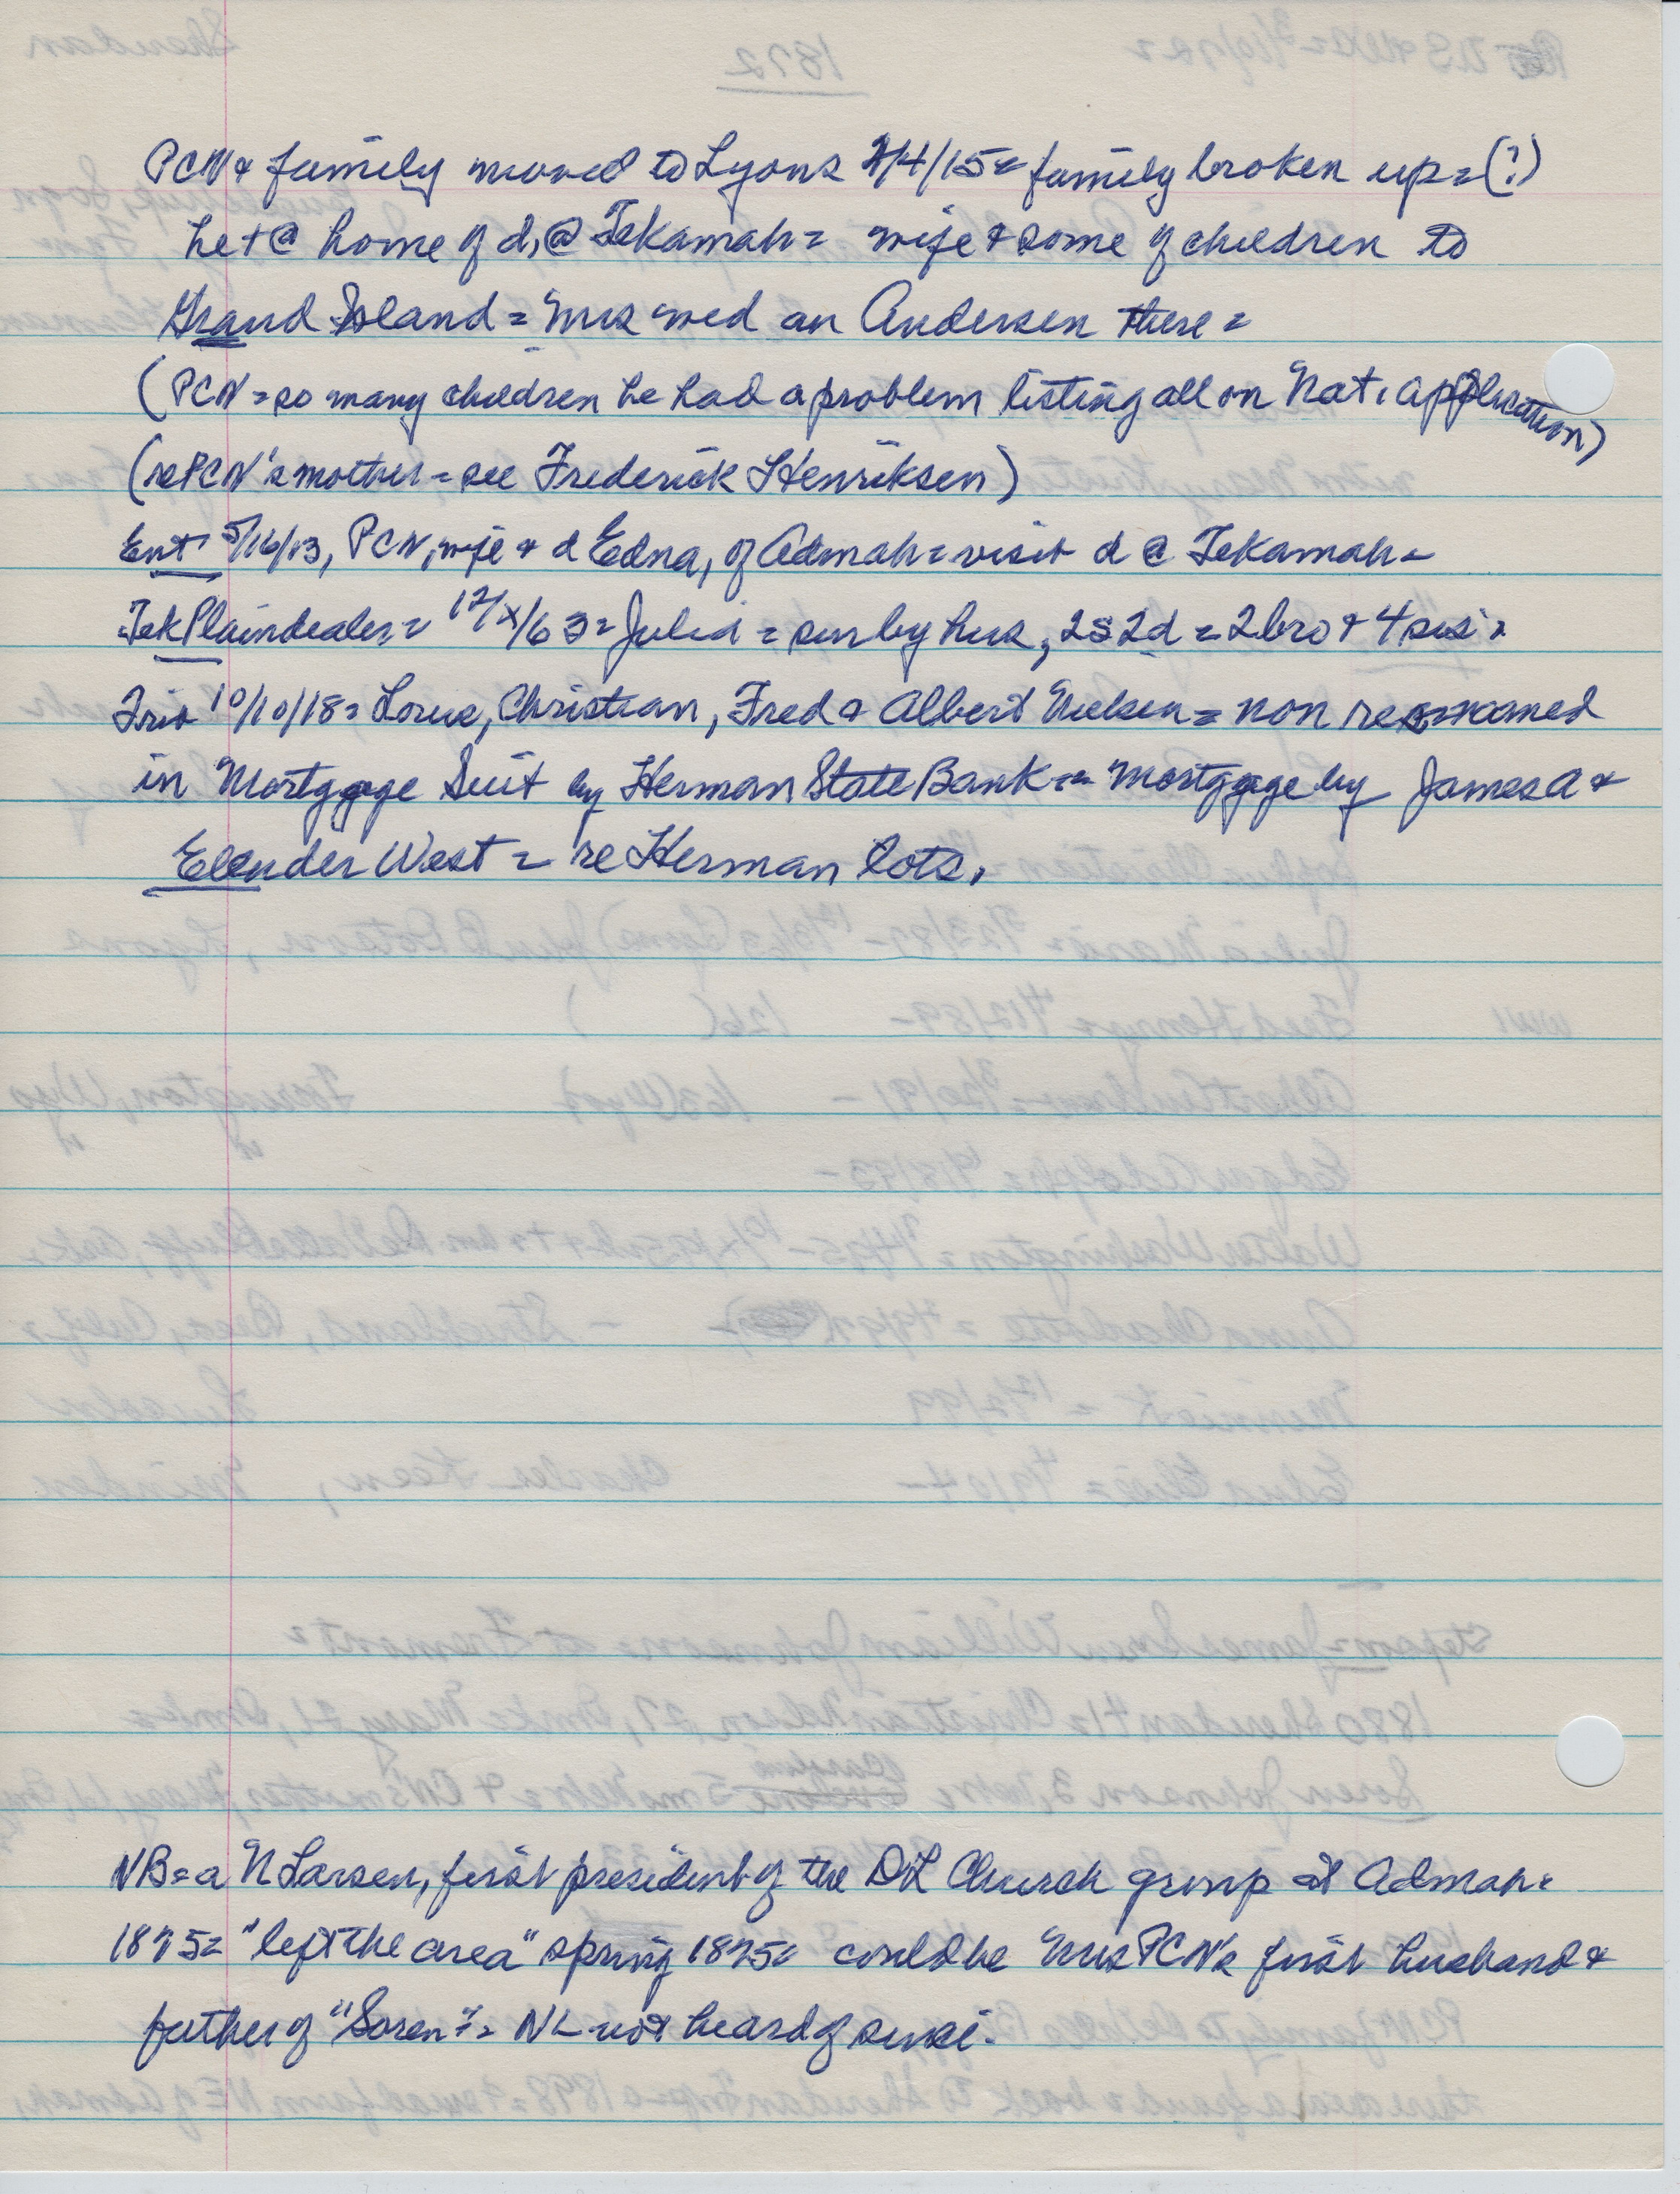 PCN & family moved to Lyons 2/4/15 = family broken up = (?)
he + @ home of d, @ Tekamah = wife & some of children to
Grand Island = Mrs wed an Andersen there =
(PCN = so many children he had a problem listing all on Nat. application)
(re PCN's mother = see Frederick Henriksen)
Ent 5/16/13, PCN, wife & d Edna, of Admah = visit d @ Tekamah =
Tek Plaindealer = 12/x/63 = Julia = sur by hus, 2s 2d = 2 bro & 4 sis =
10/10/18 = Christian, Fred & Albert Nielsen = non res named
in Mortggage Suit by Herman State Bank = Mortggage by James A &
Elender West = re Herman lots.
NB = a N Larsen, first president of the DL Church group at Admah =
1875 = "left the area" spring 1875 = could be Mrs PCN's first husband &
father of "Soren" = NL not heard of since.